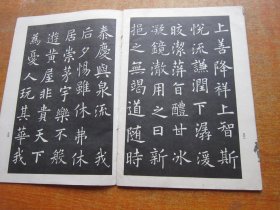 上善降祥上智斯
悅流謙潤下潺湲
皎潔蓱旨醴甘冰
凝鏡澈用之日新
挹之無竭道隨時
泰慶與泉流我
后夕惕雖休弗休
居崇茅宇樂不般
遊黃屋非貴天下
為憂人玩其華我